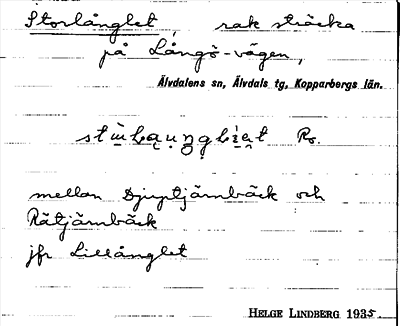 Storlånglet, rak sträcka
på Långö-vägen,
Älvdalens sn, Älvdals tg, Kopparbergs län.
mellan Djuptjärnbäck och
Rätjärnbäck
jfr Lillånglet
HELGE LINDBERG 1935